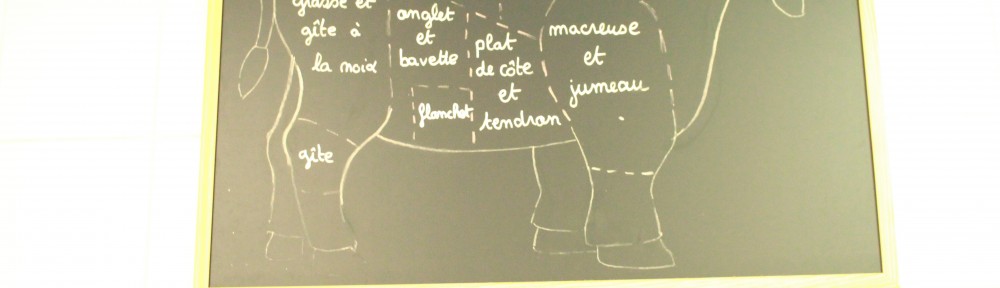 grasse et
gîte à
la noix
onglet
et
bavette
flanchet
plat
de côte
et
tendron
macreuse
et
jumeau
gîte